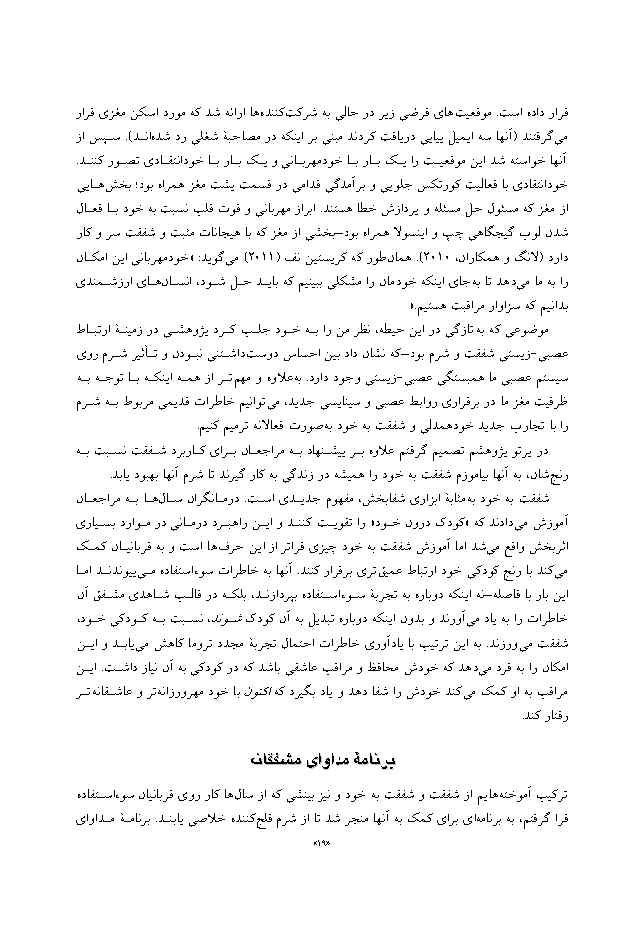 قرار داده است. موقعیت‌های فرضی زیر در حالی به شرکت‌کننده‌ها ارائه شد که مورد اسکن مغزی قرار
می‌گرفتند (آنها سه ایمیل پیاپی دریافت کردند مبنی بر اینکه در مصاحبۀ شغلی رد شده‌اند). سپس از
آنها خواسته شد این موقعیت را یک بار با خودمهربانی و یک بار با خودانتقادی تصور کنند.
خودانتقادی با فعالیت کورتکس جلویی و برآمدگی قدامی در قسمت پشت مغز همراه بود؛ بخش‌هایی
از مغز که مسئول حل مسئله و پردازش خطا هستند. ابراز مهربانی و قوت قلب نسبت به خود با فعال
شدن لوب گیجگاهی چپ و اینسولا همراه بود–بخشی از مغز که با هیجانات مثبت و شفقت سر و کار
دارد (لانگ و همکاران، ۲۰۱۰). همان‌طور که کریستین نف (۲۰۱۱) می‌گوید: «خودمهربانی این امکان
را به ما می‌دهد تا به‌جای اینکه خودمان را مشکلی ببینیم که بایـد حـل شـود، انسـان‌هـای ارزشـمندی
بدانیم که سزاوار مراقبت هستیم.»
موضوعی که به تازگی در این حیطه، نظر من را به خود جلب کرد پژوهشی در زمینۀ ارتباط
عصبی-زیستی شفقت و شرم بود–که نشان داد بین احساس دوست‌داشتنی نبودن و تأثیر شرم روی
سیستم عصبی ما همبستگی عصبی-زیستی وجود دارد. به‌علاوه و مهم‌تر از همه اینکه با توجه به
ظرفیت مغز ما در برقراری روابط عصبی و سیناپسی جدید، می‌توانیم خاطرات قدیمی مربوط به شرم
را با تجارب جدید خودهمدلی و شفقت به خود به‌صورت فعالانه ترمیم کنیم.
در پرتو پژوهشم تصمیم گرفتم علاوه بر پیشنهاد به مراجعان برای کاربرد شفقت نسبت به
رنج‌شان، به آنها بیاموزم شفقت به خود را در همیشه در زندگی به کار گیرند تا شرم آنها بهبود یابد.
شفقت به خود به‌مثابۀ ابزاری شفابخش، مفهوم جدیدی است. درمانگران سال‌ها به مراجعان
آموزش می‌دادند که «کودک درون خود» را تقویت کنند و این راهبرد درمانی در موارد بسیاری
اثربخش واقع می‌شد اما آموزش شفقت به خود چیزی فراتر از این حرف‌ها است و به قربانیان کمک
می‌کند با رنج کودکی خود ارتباط عمیق‌تری برقرار کنند. آنها به خاطرات سوءاستفاده مـی‌پیوندنـد امـا
این بار با فاصله–نه اینکه دوباره به تجربۀ سوءاستفاده بپردازند، بلکه در قالب شاهدی مشفق آن
خاطرات را به یاد می‌آورند و بدون اینکه دوباره تبدیل به آن کودک شوند، نسبت به کودکی خود،
شفقت می‌ورزند. به این ترتیب با یادآوری خاطرات احتمال تجربۀ مجدد تروما کاهش می‌یابد و این
امکان را به فرد می‌دهد که خودش محافظ و مراقب عاشقی باشد که در کودکی به آن نیاز داشت. این
مراقب به او کمک می‌کند خودش را شفا دهد و یاد بگیرد که اکنون با خود مهرورزانه‌تر و عاشقانه‌تر
رفتار کند.
برنامۀ مداوای مشفقانه
ترکیب آموخته‌هایم از شفقت و شفقت به خود و نیز بینشی که از سال‌ها کار روی قربانیان سوءاستفاده
فرا گرفتم، به برنامه‌ای برای کمک به آنها منجر شد تا از شرم فلج‌کننده خلاصی یابند. برنامۀ مداوای
«۱۹»